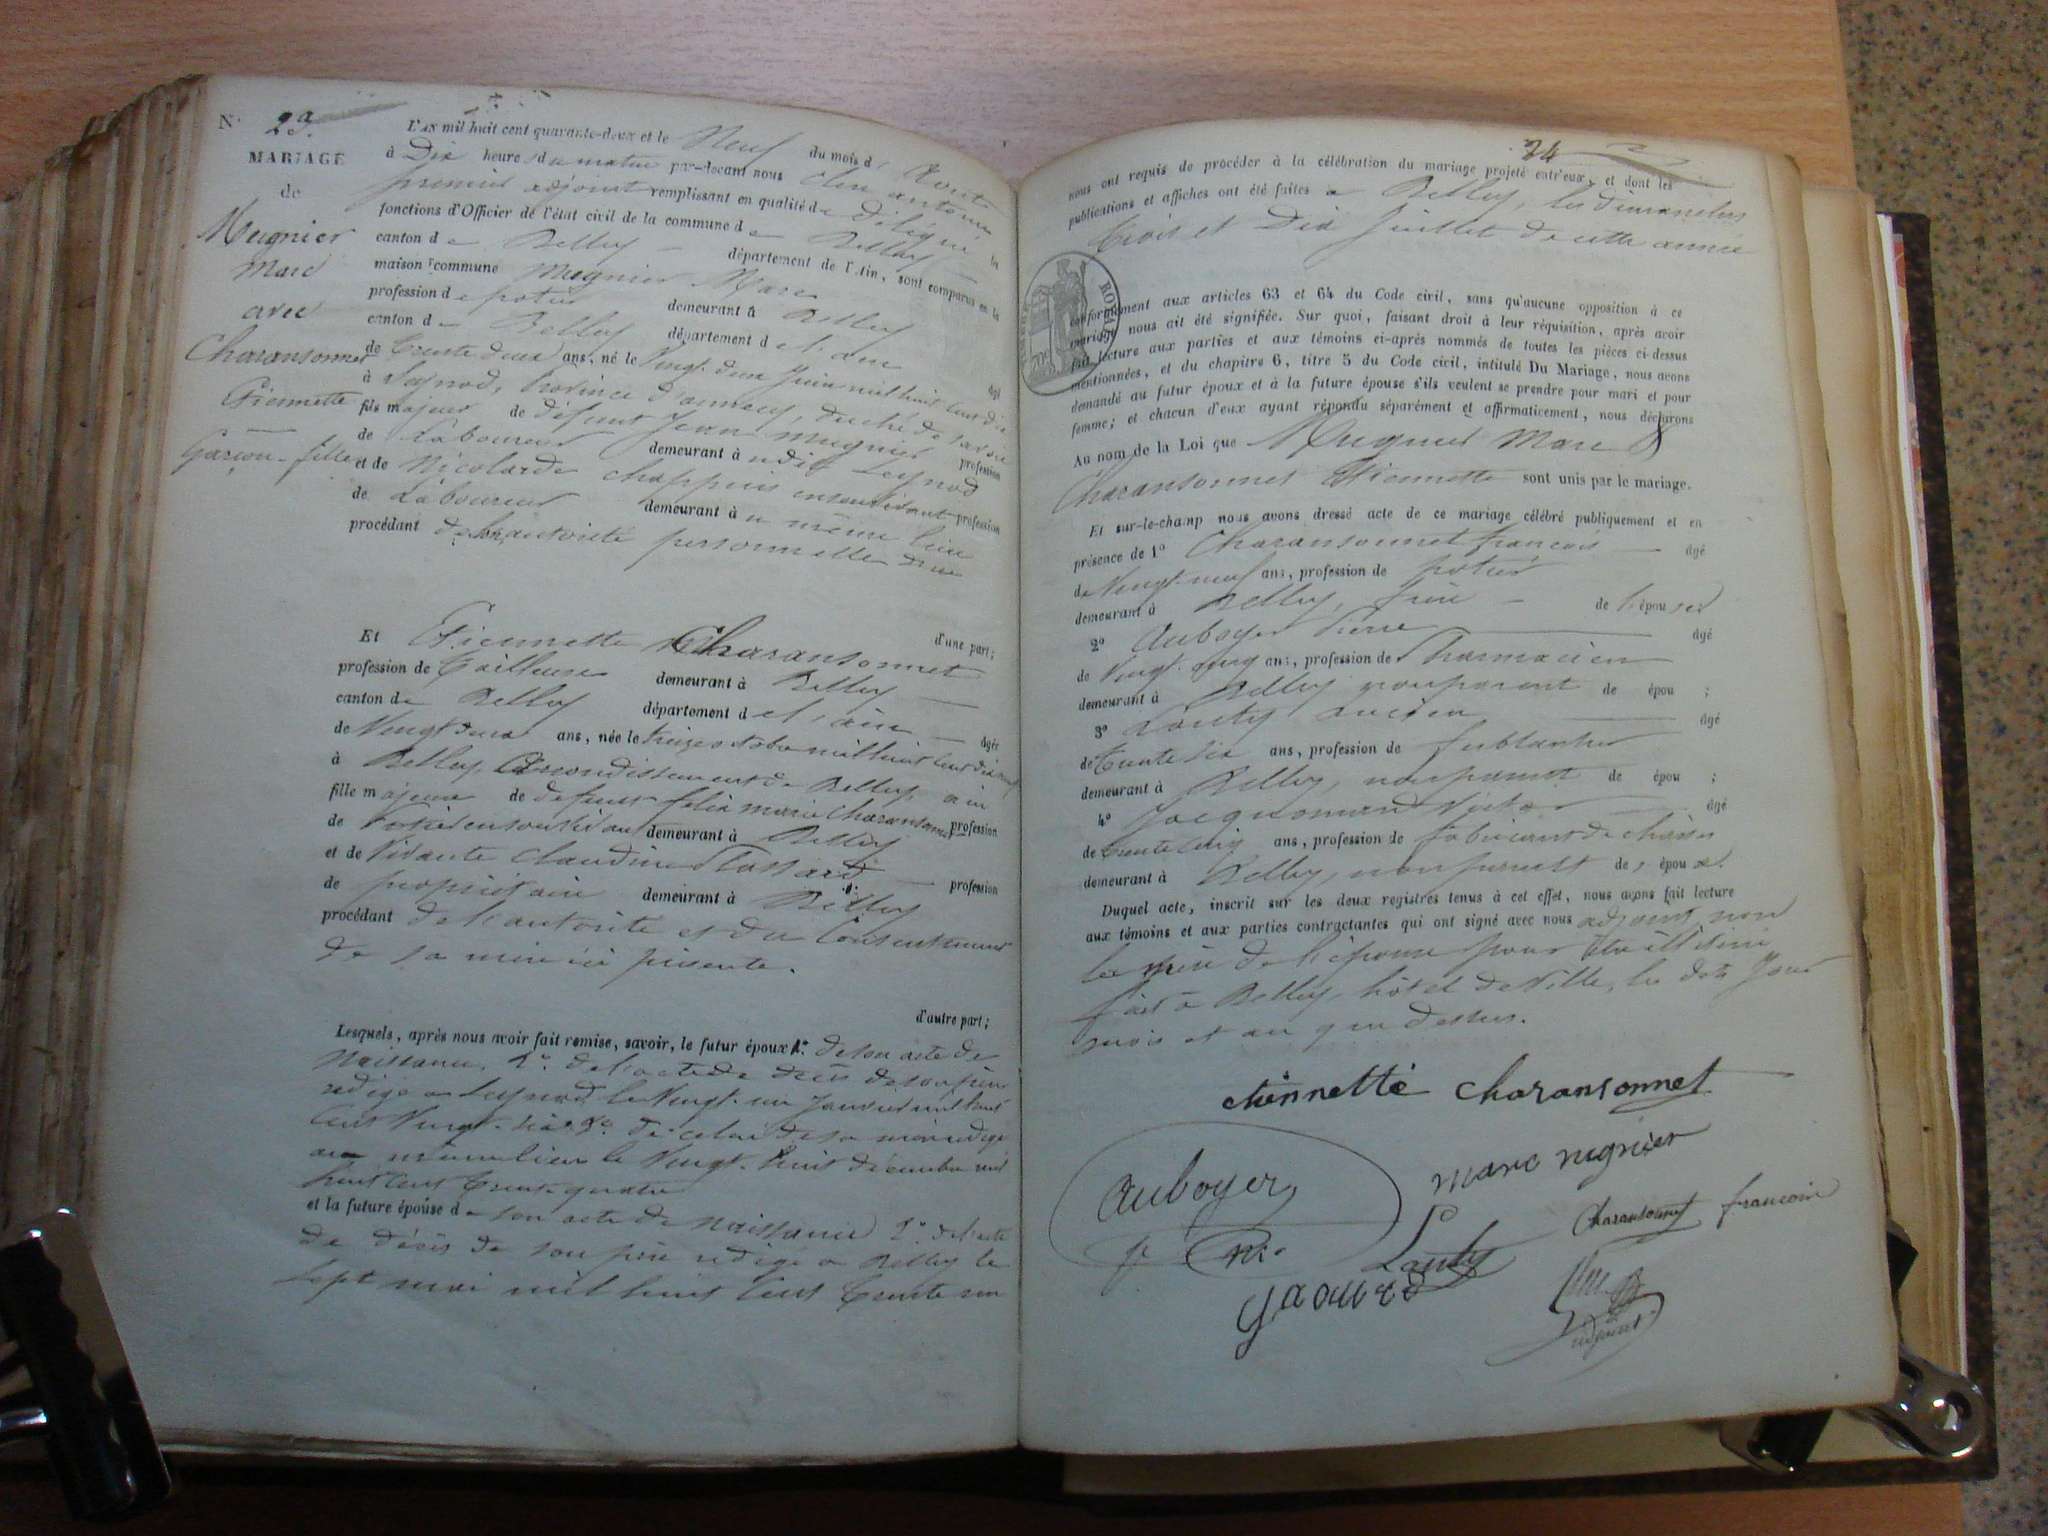 N° 23.
MARIAGE
de
Mugnier
Marc
avec
Charansonnet
Etiennette
Garçon - fille
L'AN mil huit cent quarante-deux et le Neuf du mois d' Aout
à Dix heures du matin par-devant nous
premier adjoint remplissant en qualité de délégué les
fonctions d'Officier de l'état civil de la commune de Belley
canton de Belley département de l'Ain, sont comparus en la
maison commune Mugnier Marc
profession de potier demeurant à Belley
canton de Belley département de l'ain âgé
de trente deux ans, né le Vingt deux Juin mil huit cent dix
à Seynod, Province d'annecy, duché de Savoie
fils majeur de defunt Jean Mugnier profession
de Laboureur demeurant à Seynod
et de Nicolarde Chappuis en son vivant profession
de Laboureur demeurant à même lieu
procédant de son autorité personnelle
d'une part;
Et Etiennette Charansonnet
profession de Tailleuse demeurant à Belley
canton de Belley département de l'ain âgée
de Vingt deux ans, née le treize octobre mil huit cent dix neuf
à Belley, Arrondissement de Belley, ain
fille majeure de defunt felix marie Charansonnet profession
de Potier en son vivant demeurant à Belley
et de Vivante Claudine profession
de propriétaire demeurant à Belley
procédant de l'autorité et du Consentement
de sa mère ici présente.
d'autre part;
Lesquels, après nous avoir fait remise, savoir, le futur époux 1°. de son acte de
Naissance, 2°. de l'acte de décès de son père
redigé a Seynod le Vingt un Janvier mil huit
cent Vingt six 3°. de celui de sa mère redigé
au même lieu le Vingt huit décembre mil
huit cent trente quatre
et la future épouse de son acte de Naissance 2°. de l'acte
de décès de son père redigé a Belley le
Sept mai mil huit cent trente un
24
nous ont requis de procéder à la célébration du mariage projeté entr'eux, et dont les
publications et affiches ont été faites a Belley, les dimanches
trois et Dix Juillet de cette année
ROYAL
conformément aux articles 63 et 64 du Code civil, sans qu'aucune opposition à ce
mariage nous ait été signifiée. Sur quoi, faisant droit à leur réquisition, après avoir
fait lecture aux parties et aux témoins ci-après nommés de toutes les pièces ci-dessus
mentionnées, et du chapitre 6, titre 5 du Code civil, intitulé Du Mariage, nous avons
demandé au futur époux et à la future épouse s'ils veulent se prendre pour mari et pour
femme; et chacun d'eux ayant répondu séparément et affirmativement, nous déclarons
Au nom de la Loi que Mugnier Marc &
Charansonnet Etiennette sont unis par le mariage.
Et sur-le-champ nous avons dressé acte de ce mariage célébré publiquement et en
présence de 1° Charansonnet françois âgé
de Vingt neuf ans, profession de potier
demeurant à Belley, frère de l'épouse
2° Auboyer Pierre âgé
de Vingt cinq ans, profession de Pharmacien
demeurant à Belley non parent de épou ;
3° Lauty Lucien âgé
de trente six ans, profession de ferblantier
demeurant à Belley, non parent de épou ;
4° Jacquemard Victor âgé
de trente cinq ans, profession de fabricant de chaises
demeurant à Belley, non parent de, épou x.
Duquel acte, inscrit sur les deux registres tenus à cet effet, nous avons fait lecture
aux témoins et aux parties contractantes qui ont signé avec nous adjoint, non
la mère de l'épouse pour être illitéré
fait à Belley, hôtel de Ville, les dits Jour
mois et an que dessus.
etiennette charansonnet
marc mgnier
auboyer
p. Phi.
Lauty
Charansonnet francois
adjoint